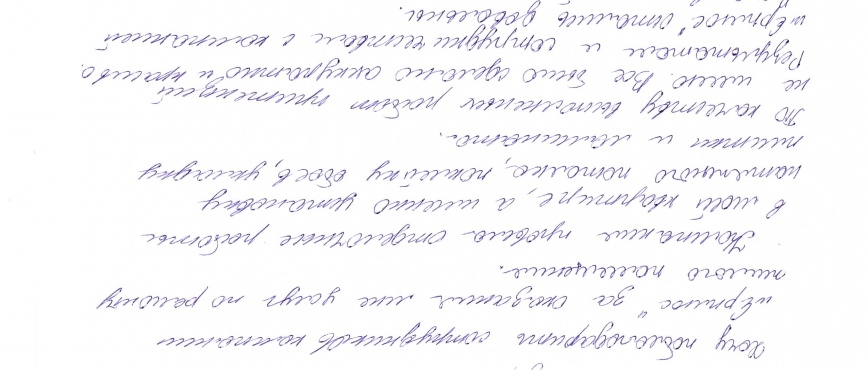 Хочу поблагодарить сотрудников компании
"Эртиос" за оказание мне услуг по ремонту
жилого помещения.
Компания провела отделочные работы
в моей квартире, а именно установку
натяжного потолка, поклейку обоев, укладку
плитки и ламината.
По качеству выполненных работ претензий
не имею. Все было сделано аккуратно и красиво.
Результатом и сотрудничеством с компанией
остались довольны.